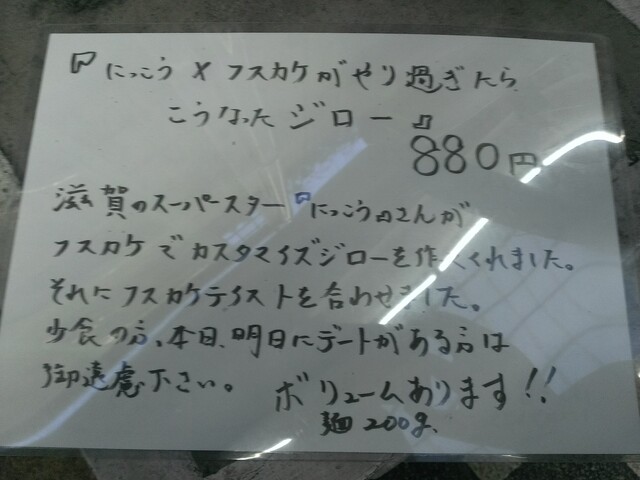 『にっこう×フスカケがやり過ぎたら
こうなったジロー』
880円
滋賀のスーパースター『にっこう』さんが
フスカケでカスタマイズジローを作ってくれました。
それにフスカケテイストを合わせました。
少食の方、本日、明日にデートがある方は
御遠慮下さい。 ボリュームあります!!
麺200g.